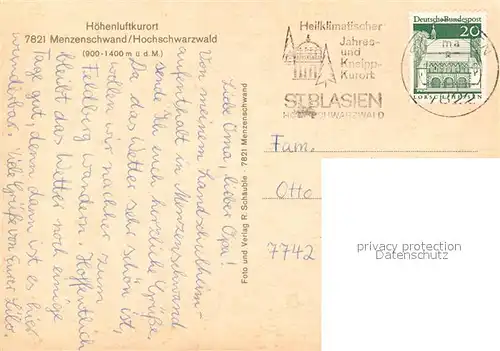 Höhenluftkurort
7821 Menzenschwand/Hochschwarzwald
(900-1400 m ü. d. M.)
Liebe Oma, lieber Opa!
Von meinem Landschulheim-
aufenthalt in Menzenschwand
sende ich euch herzliche Grüße.
Da das Wetter sehr schön ist,
wollen wir nachher zum
Feldberg wandern. Hoffentlich
bleibt das Wetter noch einige
Tage gut, denn dann ist es hier
wunderbar. Viele Grüße von Eurer
Foto und Verlag R. Schäuble · 7821 Menzenschwand
Heilklimatischer
Jahres-
und
Kneipp-
Kurort
ST. BLASIEN
HOCHSCHWARZWALD
Deutsche Bundespost
20
LORSCH/HESSEN
7822
Fam.
Otto
7742
privacy protection
watermark